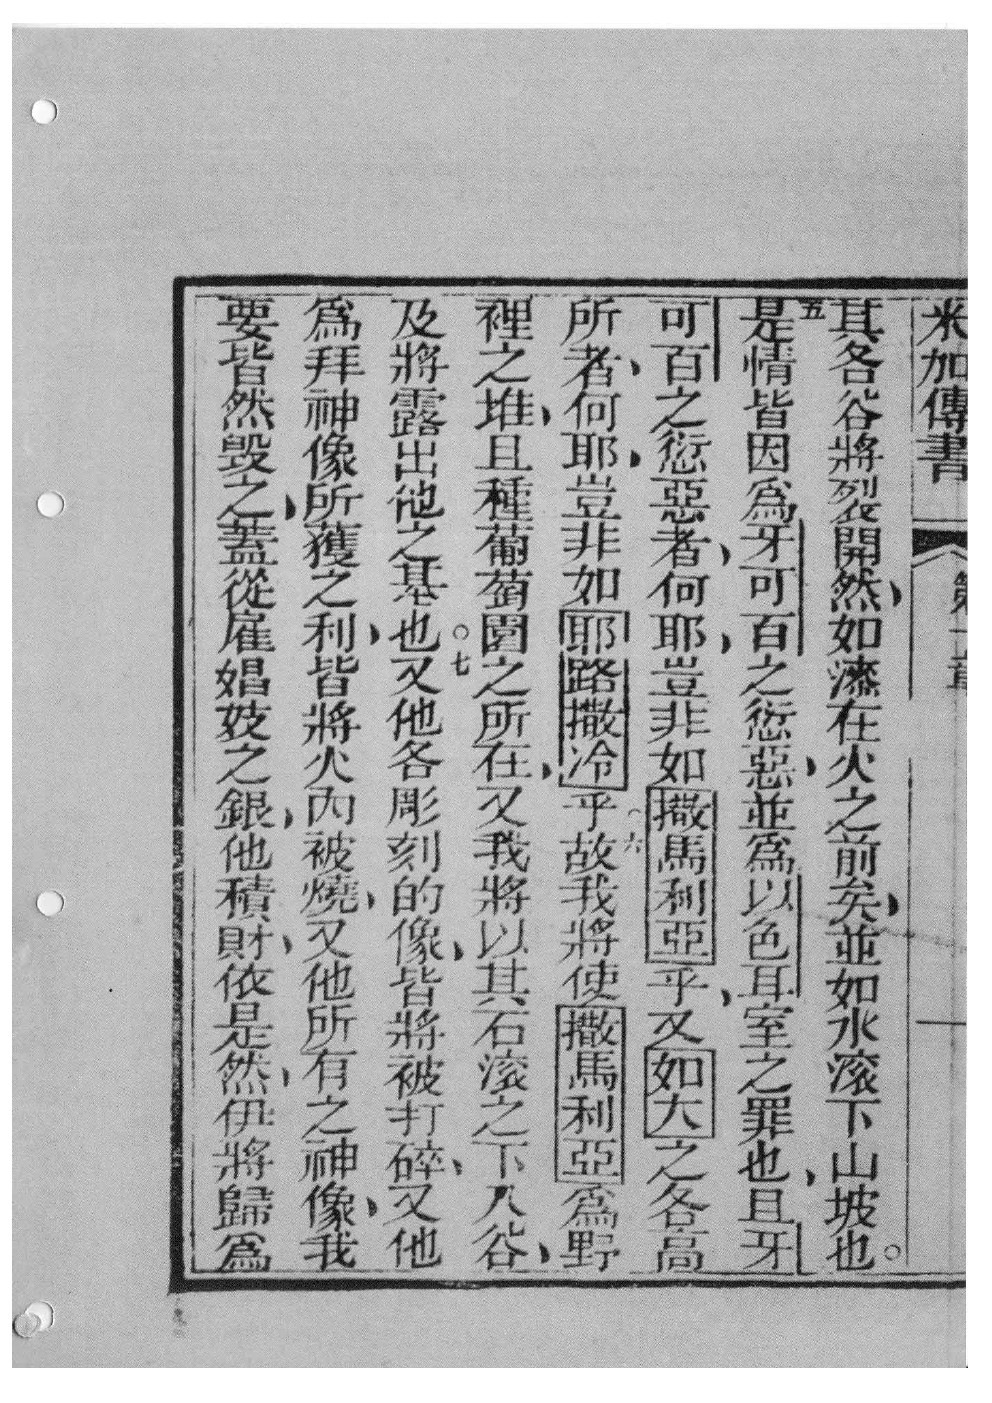 米加傳書 第一章
其各谷將裂開然、如㴃在火之前矣、並如水滚下山坡也。
五是情皆因爲牙可百之愆惡、並爲以色耳室之罪也、且牙
可百之愆惡者、何耶、豈非如撒馬利亞乎、又如大之各高
所者、何耶、豈非如耶路撒冷乎○六故我將使撒馬利亞爲野
裡之堆、且種葡萄園之所在、又我將以其石滚之下入谷、
及將露出他之基也○七又他各彫刻的像、皆將被打碎、又他
爲拜神像所獲之利、皆將火內被燒、又他所有之神像、我
要皆然毀之、蓋從雇娼妓之銀、他積財、依是然、伊將歸爲